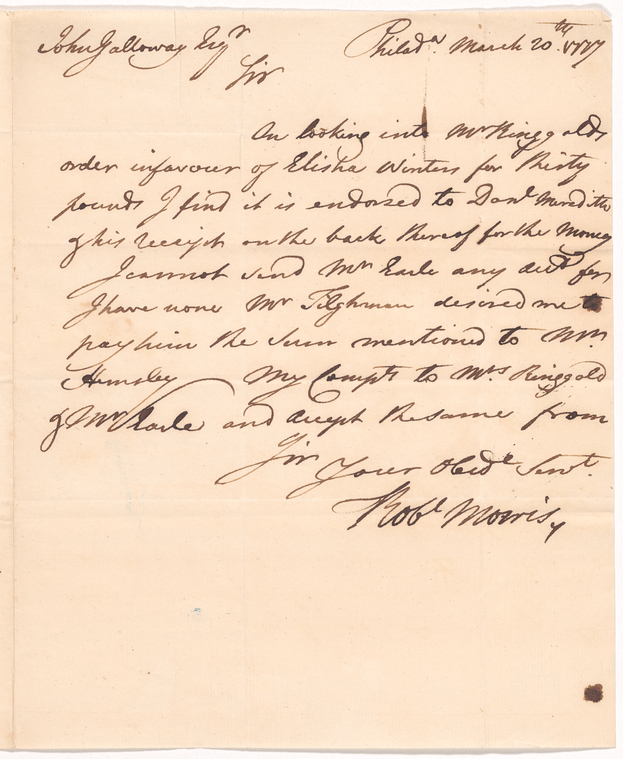 John Galloway Esqr Philada. March 20th. 1777
Sir
On looking into Mr Ringgolds
order in favour of Elisha Winters for Thirty
pounds I find it is endorsed to Danl Meredith
& his receipt on the back thereof for the Money
I cannot send Mr Earle any
I have none Mr Tilghman desired me to
pay him the Sum mentioned to Mr.
Hemsley My Compts to Mrs Ringgold
& Mr Earle and accept the same from
Sir
Your Obedt Servt.
Robt Morris